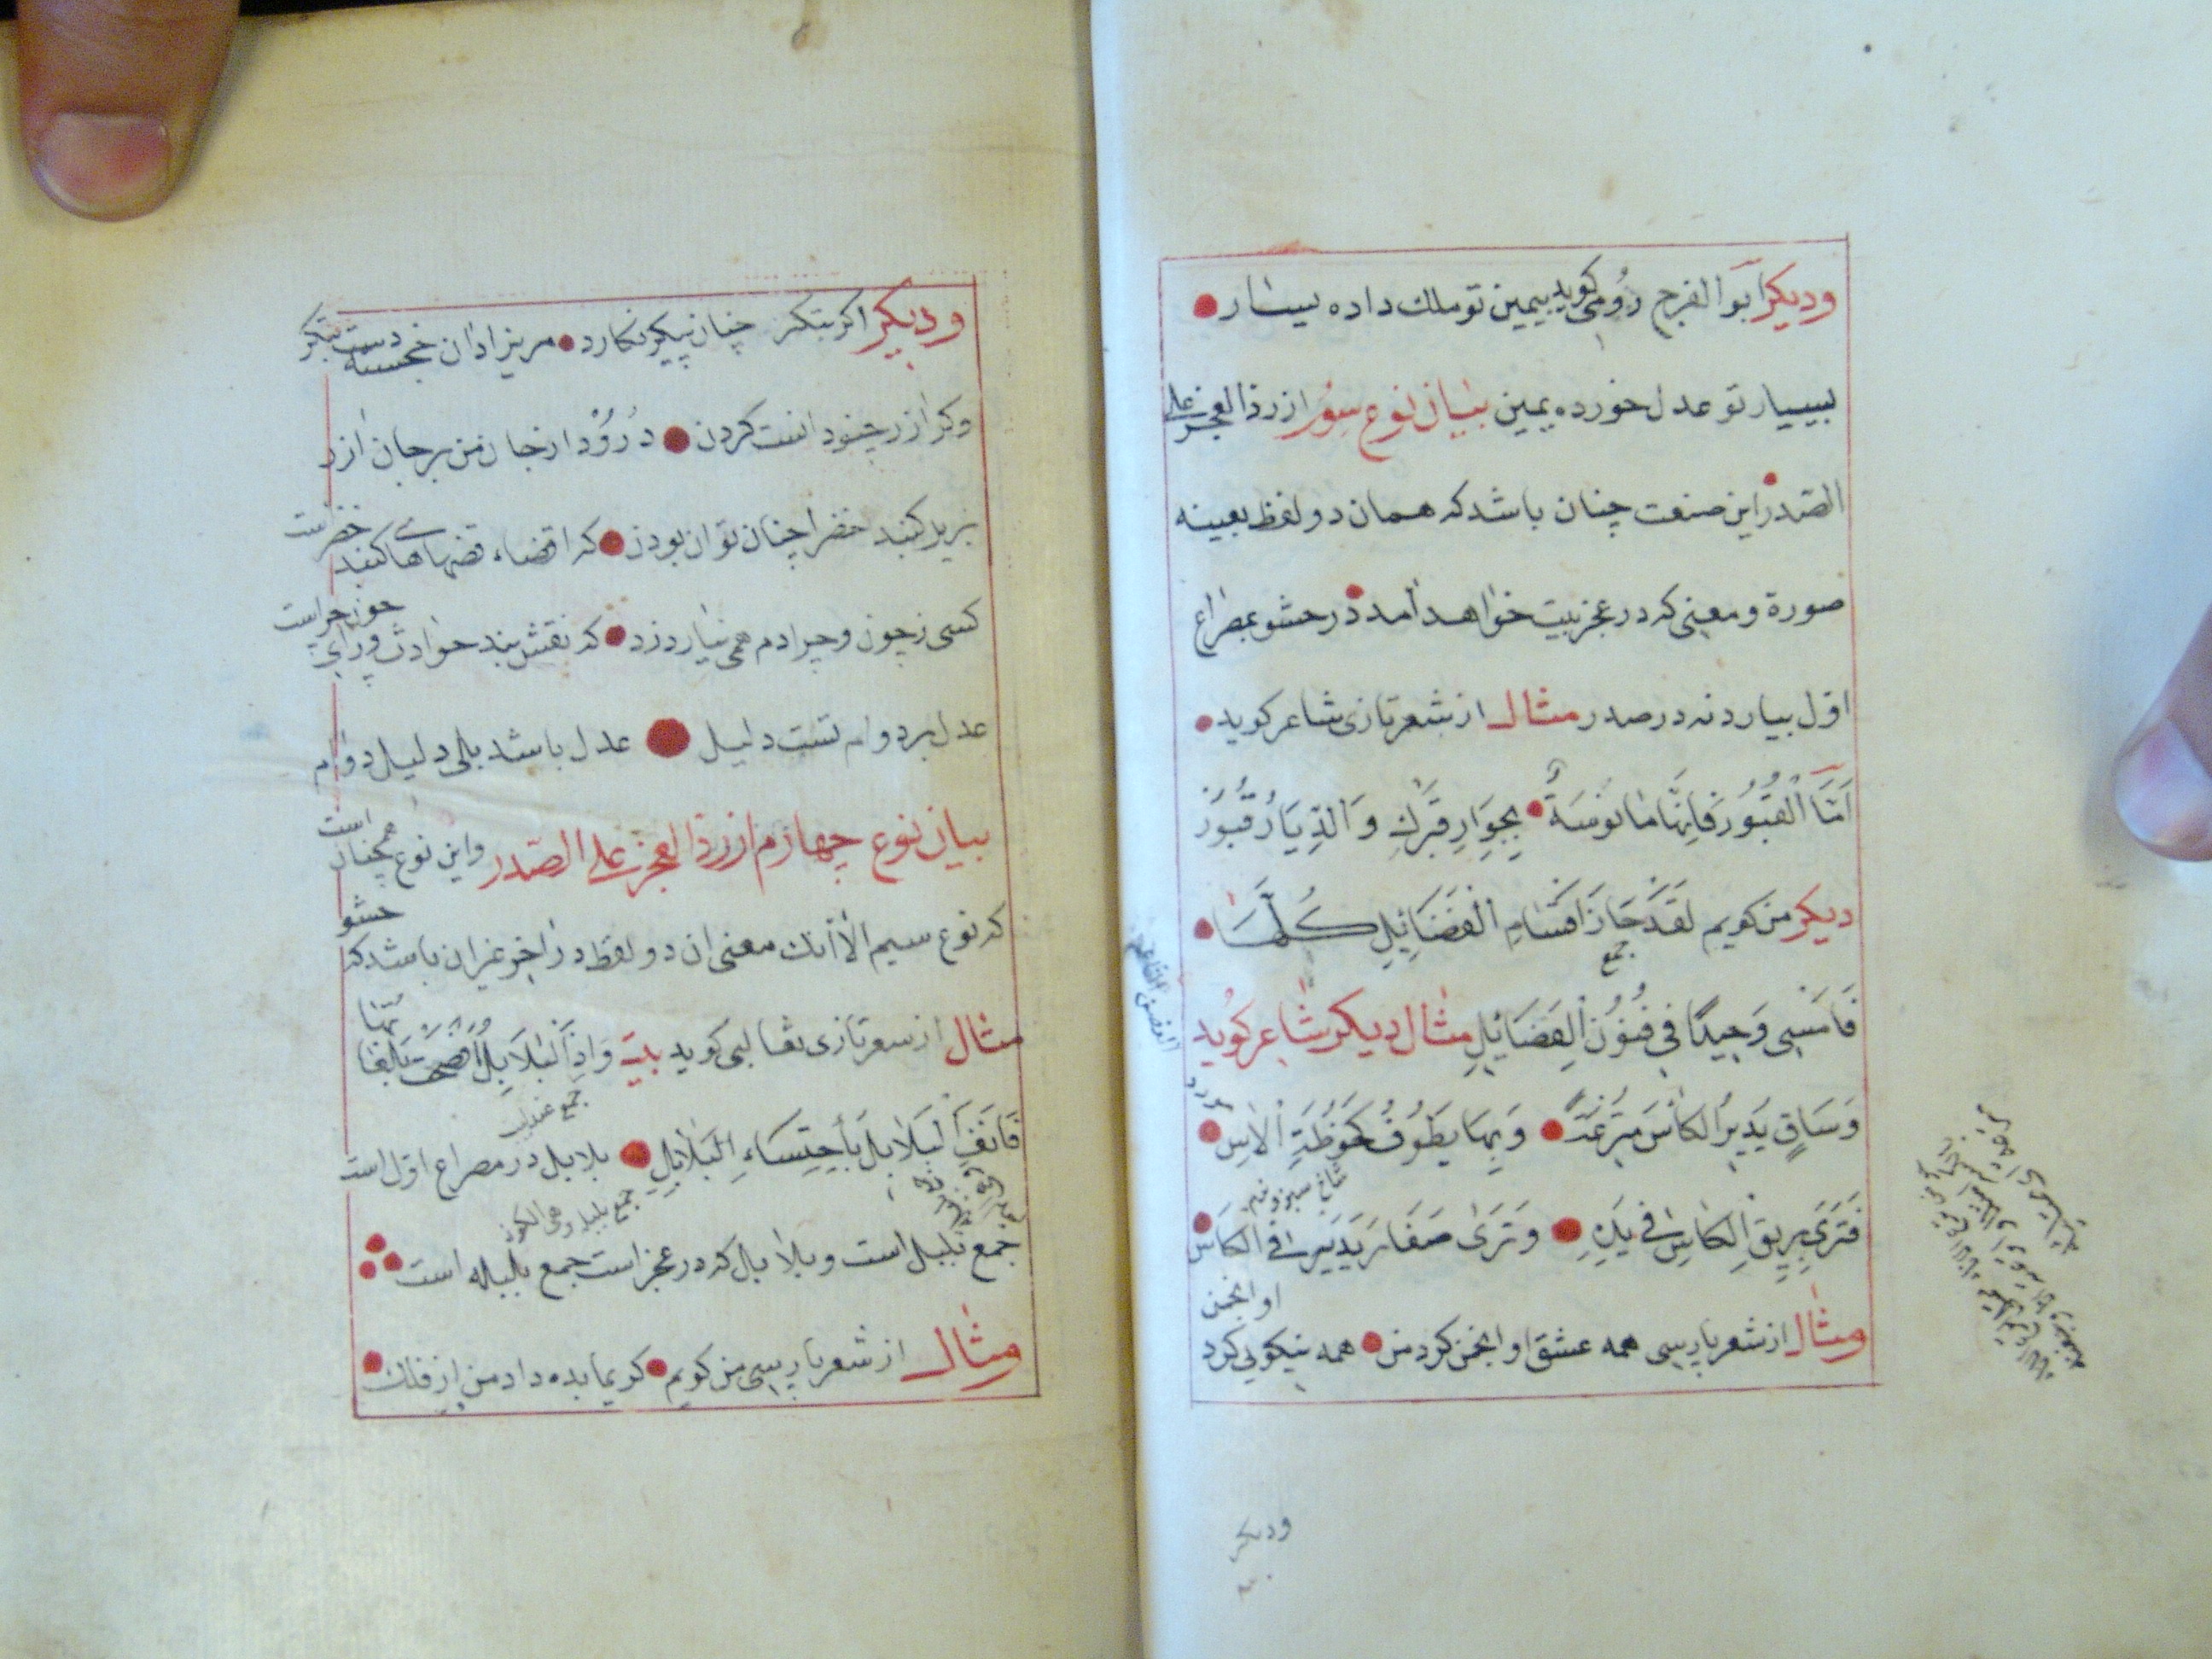 ودیکر ابو الفرج رومی کوید بیمین تو ملك داده یسار
بیسیار تو عدل خورده یمین بیان نوع سور از رد العجز علی
الصدر این صنعت چنان باشد که همان دو لفظ بعینه
صورة و معنی که در عجز بیت خواهد آمد در حشو بمصراع
اول بیارد نه در صدر مثال از شعر تازی شاعر کوید
اَمَّا الْقُبُورُ فَاِنَّهَا مَانُوسَةٌ بِجِوَارِ قَبْرِكَ وَالدِّيَارُ قُبُورُ
دیکر من کویم لَقَدْ حَازَ اَقْسَامِ الْفَضَائِلِ كُلَّهَا
جمع
فَاَمْسٰى وَحِيدًا فِي فُنُونِ الْفَضَائِلِ مثال دیکر شاعر کوید
وَسَاقٍ يُدِيرُ الكَاْسَ مُتْرَعَةً وَبِهَا يَطُوفُ كَخُوطَةِ الْاٰسِ
فَتَرٰى بَرِيقَ الكَاسِ فِي يَدِهِ وَتَرٰى صَفَا يَدَيْهِ فِي الكَاسِ
مثال از شعر پارسی همه عشق او انجمن کرد من همه نیکویی کرد
او انجمن
ودیکر
ودیکر اکر بتکر چنان پیکر نکارد مریزاد ان خجسته دست بتکر
وکر ازر چنو دانست کردن درود از جان من بر جان ازر
بزیر کنبد خضرا چنان توان بودن که اقضاء قضاهای کنبد خضراست
کسی ز چون و چرا دم همی نیارد زد که نقش بند حوادث ورای چون چراست
عدل بر دوام تست دلیل عدل باشد بلی دلیل دوام
بیان نوع چهارم از رد العجز علی الصدر واین نوع همچنان است
که نوع سیم الا انك معنی ان دو لفظ در اخر غیر ان باشد که حشو
مثال از شعر تازی ثعالبی کوید بیت وَاِذَا الْبَلَابِلُ اَفْصَحَتْ بِلُغَاتِهَا
فَانْفِ الْبَلَابِلَ بِاحْتِسَاءِ الْبَلَابِلِ بلابل در مصراع اول است
جمع عندلیب
جمع بلبل است و بلابل که در عجز است جمع بلبله است
مثال از شعر پارسی من کویم کو یما بده داد من از فلك